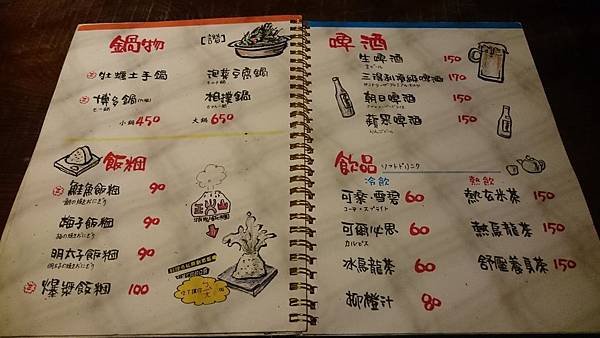 鍋物 [譜]
牡蠣土手鍋 泡菜豆腐鍋
博多鍋 相撲鍋
小鍋 450 大鍋 650
飯糰
鮭魚飯糰 90
梅子飯糰 90
明太子飯糰 90
爆漿飯糰 100
火山
啤酒
生啤酒 150
生ビール
三得利頂級啤酒 170
朝日啤酒 150
蘋果啤酒 150
りんごビール
飲品 ソフトドリンク
冷飲 熱飲
可樂·雪碧 60 熱玄米茶 150
コーラ・スプライト
可爾必思 60 熱烏龍茶 150
カルピス
冰烏龍茶 60 舒壓養身茶 150
柳橙汁 80